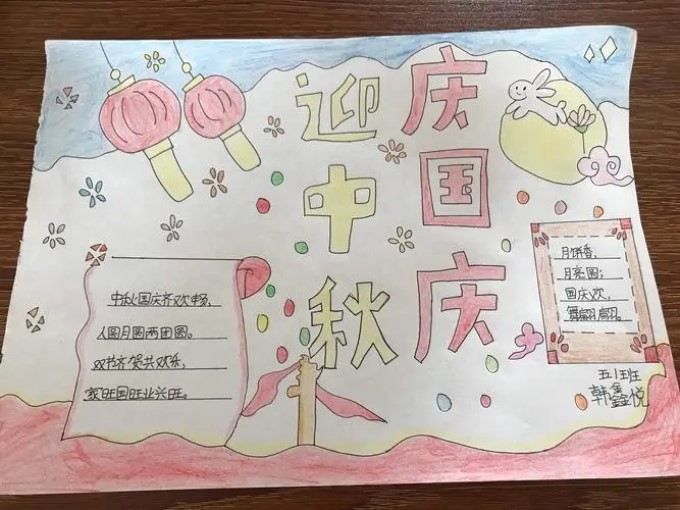 庆国庆
迎中秋
中秋国庆齐欢畅，
人圆月圆两团圆。
双节齐贺共欢乐，
家旺国旺业兴旺。
月饼香，
月亮圆；
国庆欢，
舞翩翩。
五1班
韩鑫悦